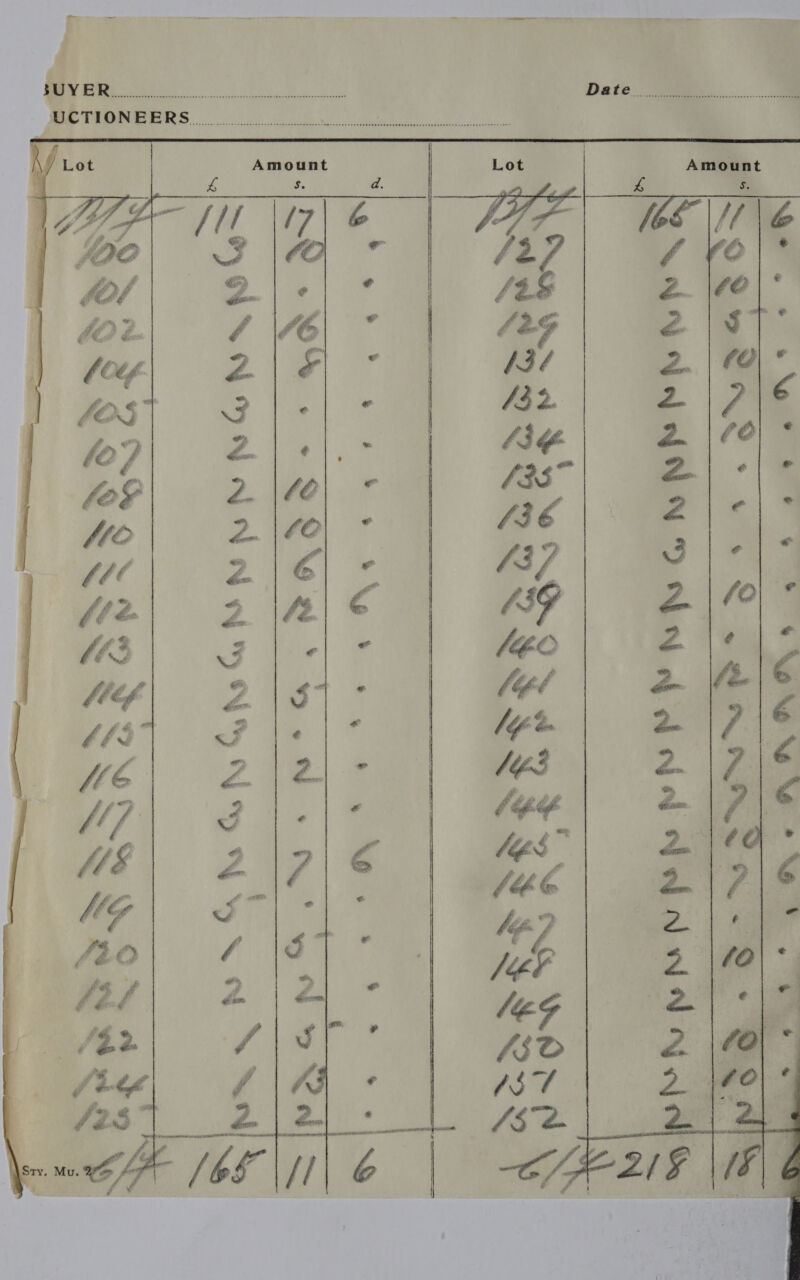 BUYER
Date
UCTIONEERS
Lot Amount Lot Amount
£ s. d. £ s.
B/f 111 17 6
100 3 10 -
101 2 - -
102 1 16 -
104 2 8 -
105 3 - -
107 2 - -
108 2 10 -
110 2 10 -
111 2 6 -
112 2 12 6
113 3 - -
114 2 5 -
115 3 - -
116 2 2 -
117 3 - -
118 2 7 6
119 5 - -
120 1 5 -
121 2 2 -
122 1 5 -
124 1 13 -
125 2 2 -
STY. MU. 2
C/f 165 11 6
B/f 165 11 6
127 1 10 -
128 2 10 -
129 2 5 -
131 2 10 -
132 2 7 6
134 2 10 -
135 2 - -
136 2 - -
137 3 - -
139 2 10 -
140 2 - -
141 2 12 6
142 2 7 6
143 2 7 6
144 2 7 6
145 2 10 -
146 2 7 6
147 2 - -
148 2 10 -
149 2 - -
150 2 10 -
151 2 10 -
152 2 2 -
C/f 218 18 6